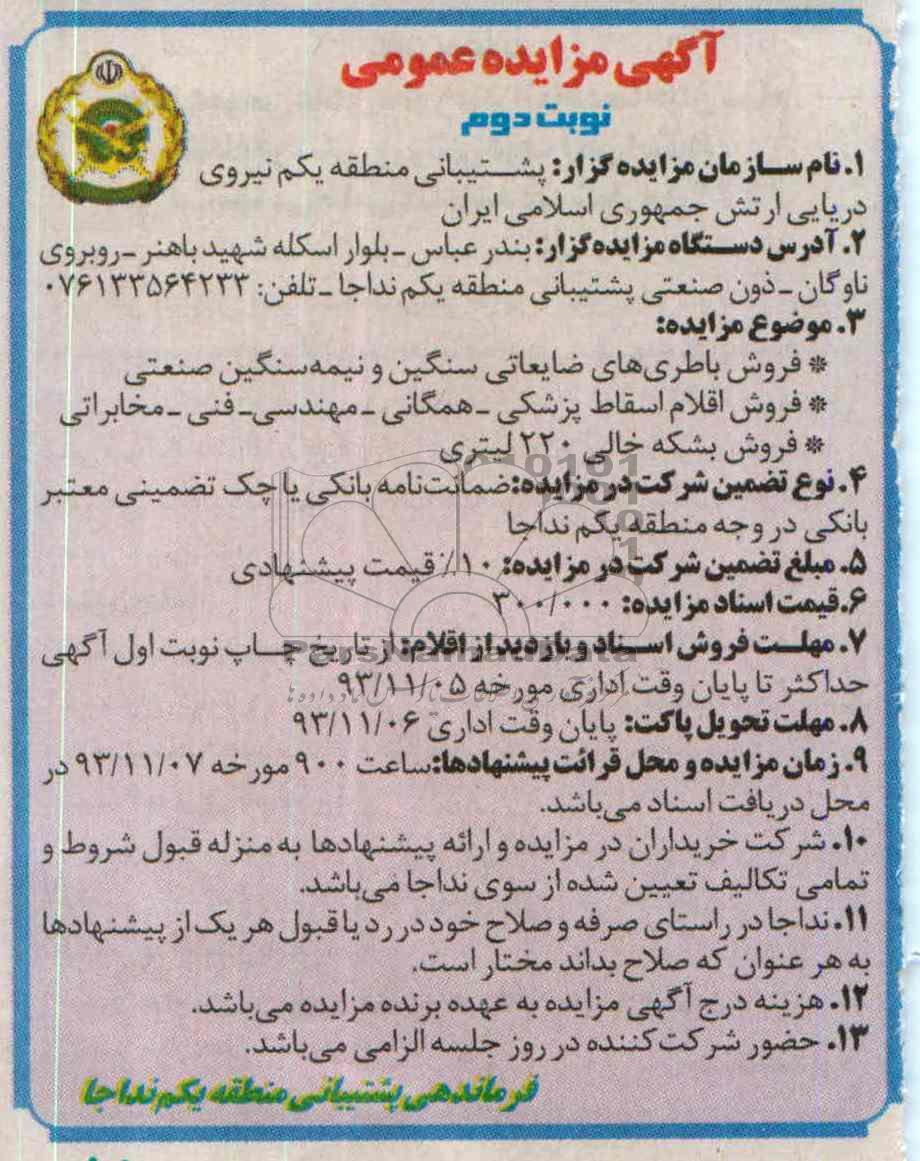 آگهی مزایده عمومی
نوبت دوم
۱. نام سازمان مزایده گزار: پشتیبانی منطقه یکم نیروی
دریایی ارتش جمهوری اسلامی ایران
۲. آدرس دستگاه مزایده‌گزار: بندر عباس ـ بلوار اسکله شهید باهنر ـ روبروی
ناوگان ـ ذون صنعتی پشتیبانی منطقه یکم نداجا ـ تلفن: ۰۷۶۱۳۳۵۶۴۲۳۳
۳. موضوع مزایده:
* فروش باطری‌های ضایعاتی سنگین و نیمه‌سنگین صنعتی
* فروش اقلام اسقاط پزشکی ـ همگانی ـ مهندسی ـ فنی ـ مخابراتی
* فروش بشکه خالی ۲۲۰ لیتری
۴. نوع تضمین شرکت در مزایده: ضمانت‌نامه بانکی یا چک تضمینی معتبر
بانکی در وجه منطقه یکم نداجا
۵. مبلغ تضمین شرکت در مزایده: ۱۰٪ قیمت پیشنهادی
۶. قیمت اسناد مزایده: ۳۰۰/۰۰۰
۷. مهلت فروش اسناد و بازدید از اقلام: از تاریخ چاپ نوبت اول آگهی
حداکثر تا پایان وقت اداری مورخه ۹۳/۱۱/۰۵
ParsNamadData
۸. مهلت تحویل پاکت: پایان وقت اداری ۹۳/۱۱/۰۶
۹. زمان مزایده و محل قرائت پیشنهادها: ساعت ۹۰۰ مورخه ۹۳/۱۱/۰۷ در
محل دریافت اسناد می‌باشد.
۱۰. شرکت خریداران در مزایده و ارائه پیشنهادها به منزله قبول شروط و
تمامی تکالیف تعیین شده از سوی نداجا می‌باشد.
۱۱. نداجا در راستای صرفه و صلاح خود در رد یا قبول هر یک از پیشنهادها
به هر عنوان که صلاح بداند مختار است.
۱۲. هزینه درج آگهی مزایده به عهده برنده مزایده می‌باشد.
۱۳. حضور شرکت‌کننده در روز جلسه الزامی می‌باشد.
فرماندهی پشتیبانی منطقه یکم نداجا